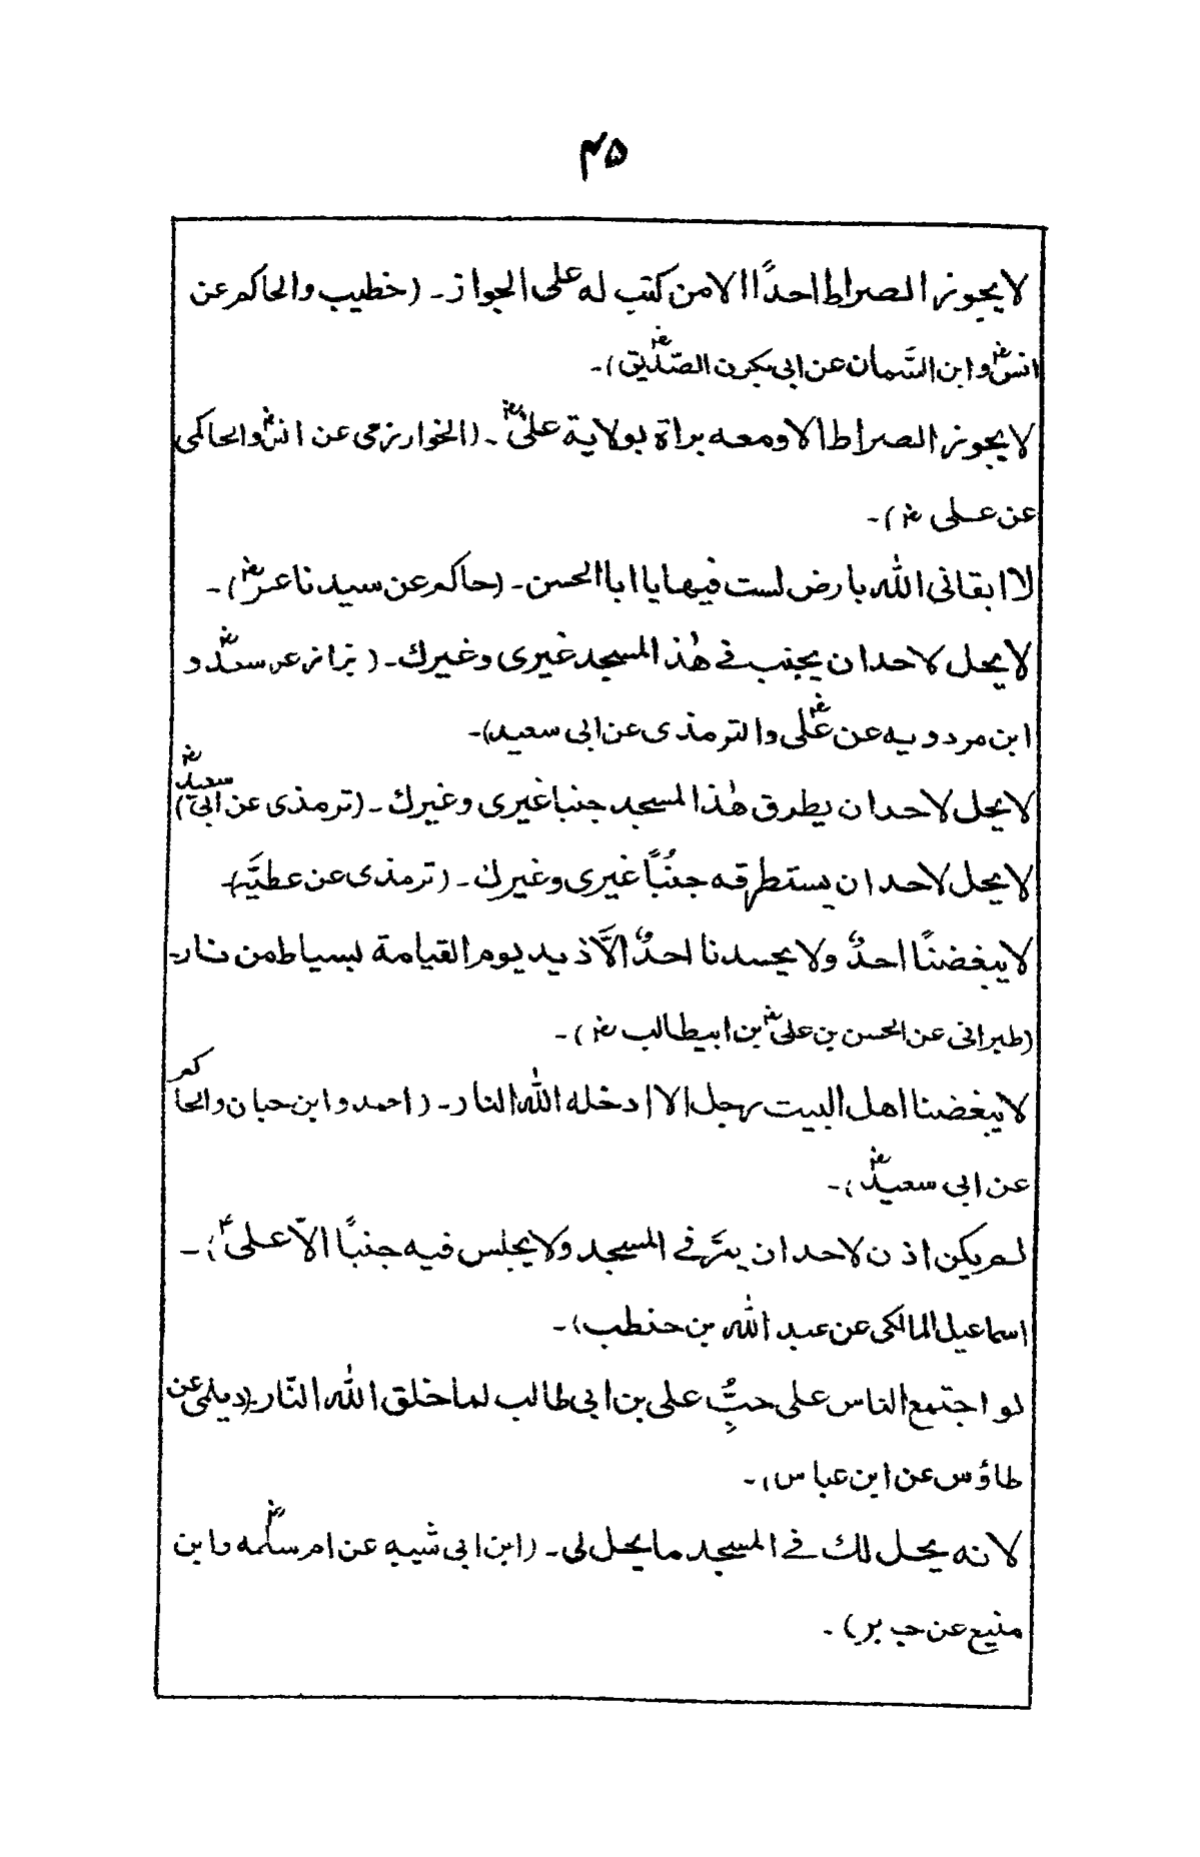 ۴۵
لا يجوز الصراط احدًا الا من كتب له على الجواز ۔ (خطيب والحاكم عن
انسؓ و ابن السَّمان عن ابى بكرن الصّدّيقؓ)۔
لا يجوز الصراط الا ومعه براة بولاية علىؓ ۔ (الخوارزمى عن انسؓ والحاكمى
عن على ؓ)۔
لا ابقانى الله بارض لست فيها يا ابا الحسن ۔ (حاكم عن سيدنا عمرؓ)۔
لا يحل لاحد ان يجنب فى هٰذ المسجد غيرى وغيرك ۔ (بزاز عن سعدؓ و
ابن مردويه عن علىؓ والترمذى عن ابى سعيد)۔
لا يحل لاحد ان يطرق هٰذا المسجد جنبا غيرى وغيرك ۔ (ترمذى عن ابى سعيدؓ)
لا يحل لاحد ان يستطرقه جنُبًا غيرى وغيرك ۔ (ترمذى عن عطيَّہ)
لا يبغضنًا احدٌ ولا يحسدنا احدٌ الاَّ ذيد يوم القيامة بسياط من نار۔
(طبرانى عن الحسن بن علىؓ بن ابيطالب ؓ)۔
لا يبغضنا اهل البيت رجل الا ادخله الله النار ۔ (احمد و ابن حبان والحاكم
عن ابى سعيدؓ)۔
لم يكن اذن لاحد ان يمَّر فى المسجد ولا يجلس فيه جنبًا الاّ علىؑ)۔
اسماعيل المالكى عن عبد الله بن حنطب)۔
لو اجتمع الناس على حبُِّ على بن ابى طالب لما خلق الله النّار۔ (ديلمى عن
طاؤس عن ابن عباس)۔
لانه يحل لك فى المسجد ما يحل لى ۔ (ابن ابى شيبہ عن ام سلمہؓ و ابن
منيع عن جابر)۔